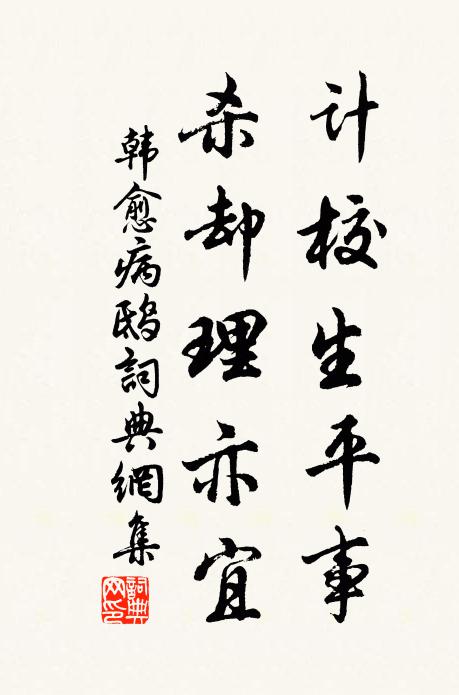 计校生平事
杀却理亦宜
韩愈病鸱詞典網集
詞典网印